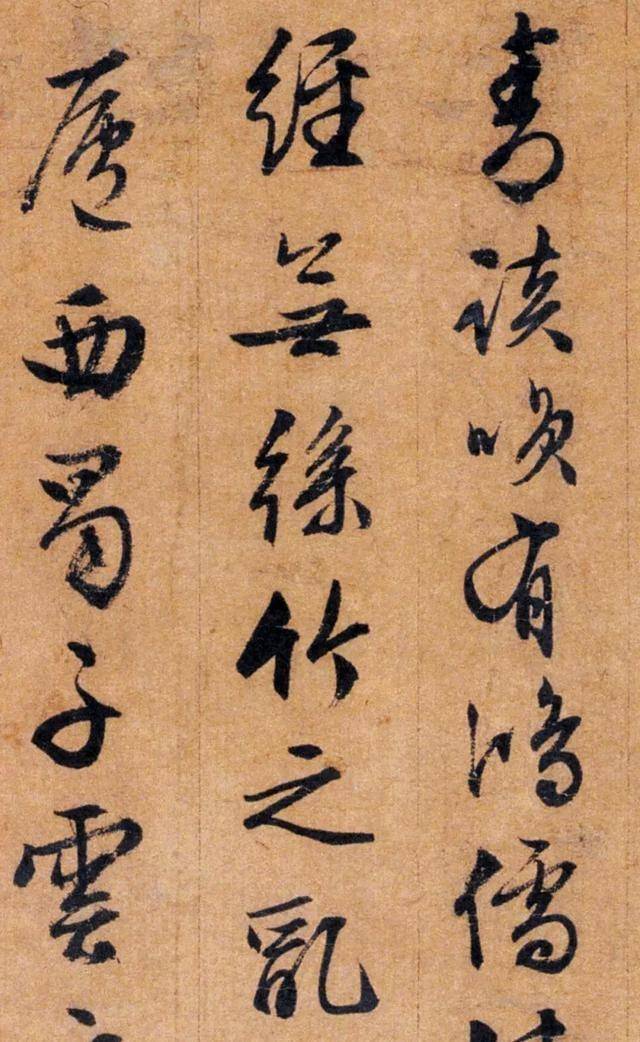 青談咲有鴻儒
經無絲竹之亂
廬西蜀子雲